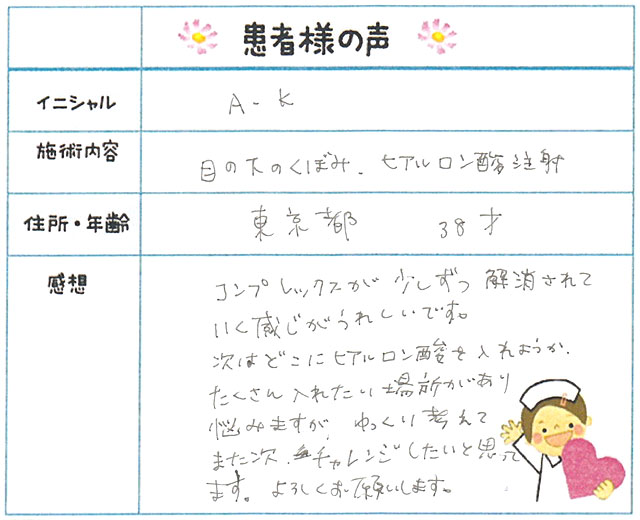 患者様の声
イニシャル A-K
施術内容 目の下のくぼみ、ヒアルロン酸注射
住所・年齢 東京都 38才
感想 コンプレックスが少しずつ解消されて
いく感じがうれしいです。
次はどこにヒアルロン酸を入れようか、
たくさん入れたい場所があり
悩みますが、ゆっくり考えて
また次、チャレンジしたいと思って
ます。よろしくお願いします。